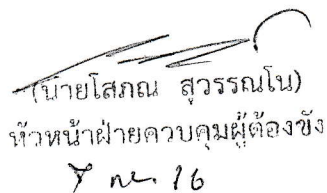 (นายโสภณ สุวรรณโน)
หัวหน้าฝ่ายควบคุมผู้ต้องขัง
16